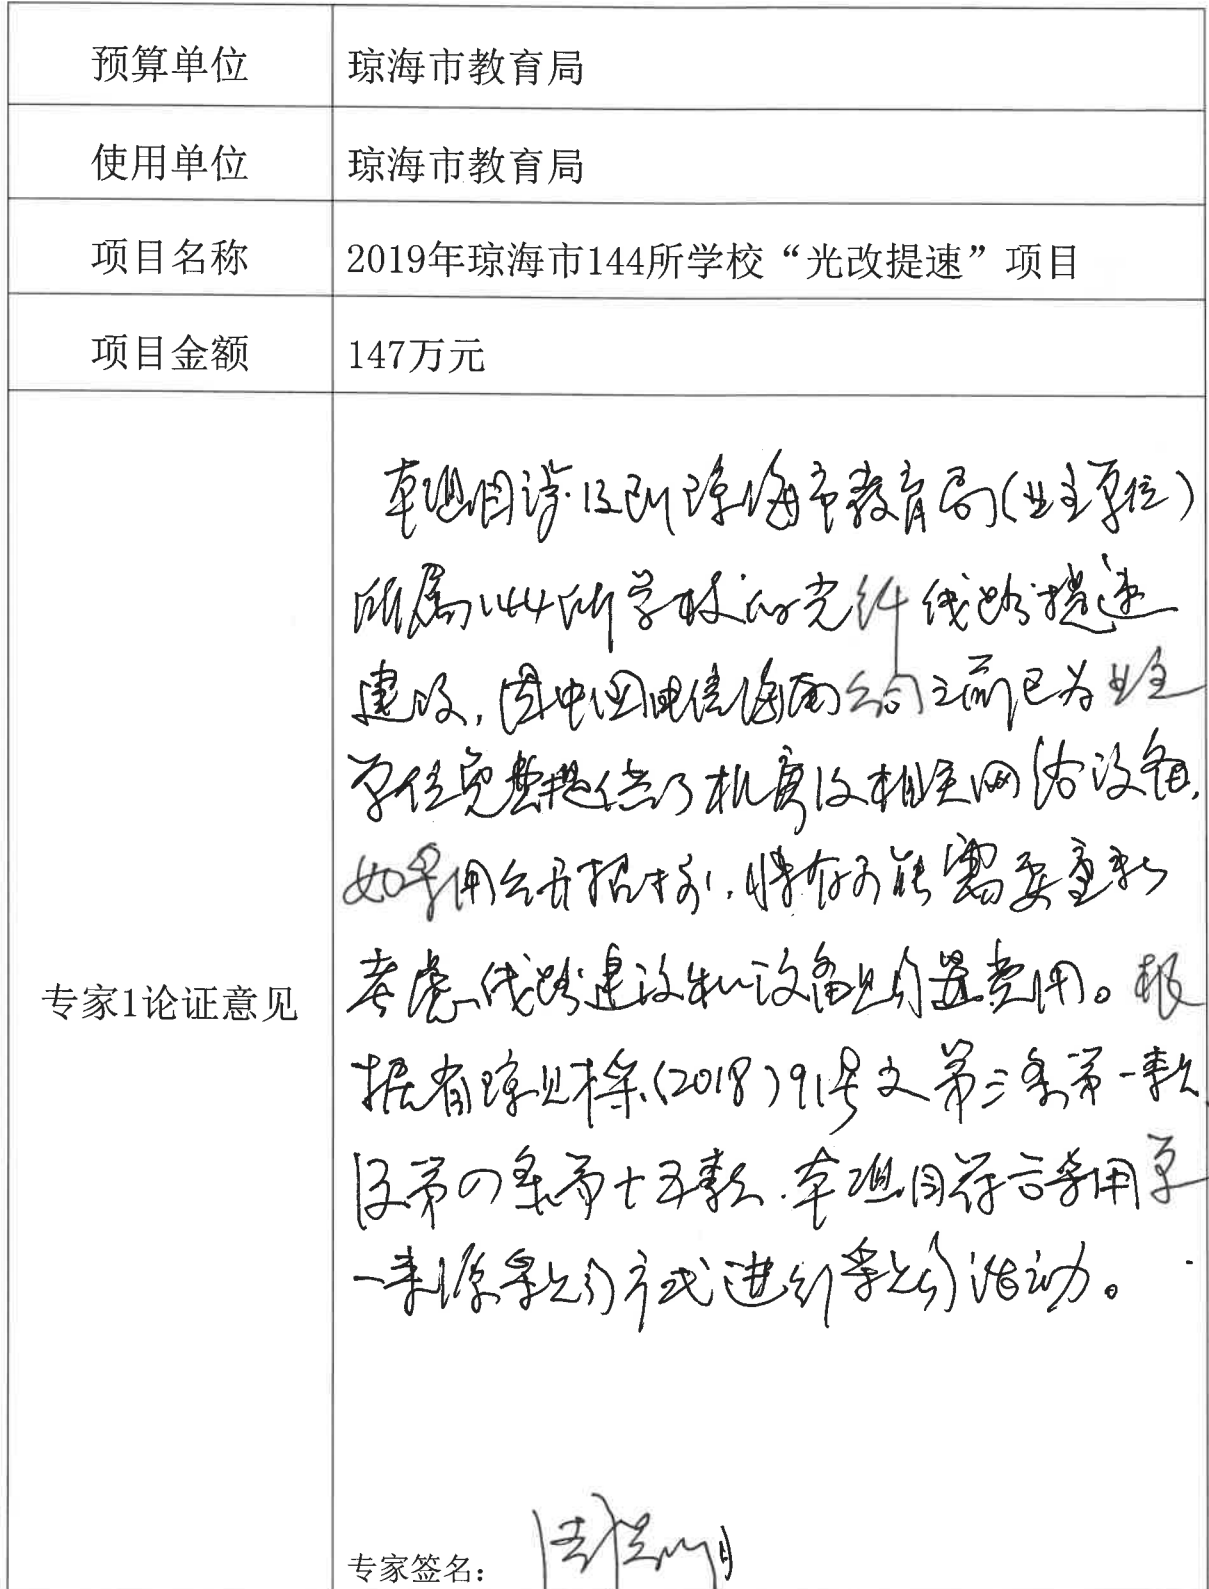 预算单位 琼海市教育局
使用单位 琼海市教育局
项目名称 2019年琼海市144所学校“光改提速”项目
项目金额 147万元
专家1论证意见
本项目涉及到琼海市教育局(业主单位)
所属144所学校的光纤线路提速
建设,因中国电信海南公司之前已为业主
单位完整提供了机房及相关网络设备,
如采用公开招标,将有可能需要重新
考虑线路建设和设备购置费用。根
据省琼财采(2018)91号文第三条第一款
及第四条第十五款.本项目符合采用单
一来源采购方式进行采购活动。
专家签名: